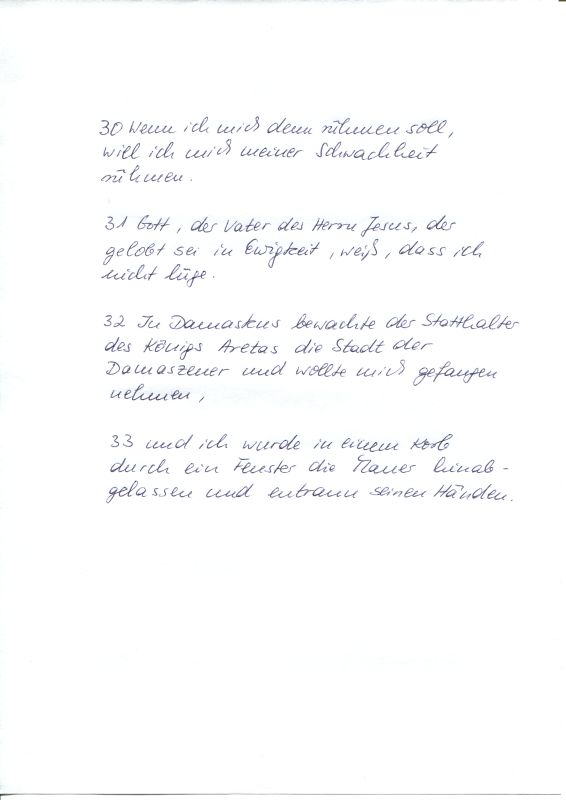 30 Wenn ich mich denn rühmen soll,
will ich mich meiner Schwachheit
rühmen.
31 Gott, der Vater des Herrn Jesus, der
gelobt sei in Ewigkeit, weiß, dass ich
nicht lüge.
32 In Damaskus bewachte der Statthalter
des Königs Aretas die Stadt der
Damaszener und wollte mich gefangen
nehmen,
33 und ich wurde in einem Korb
durch ein Fenster die Mauer hinab-
gelassen und entrann seinen Händen.